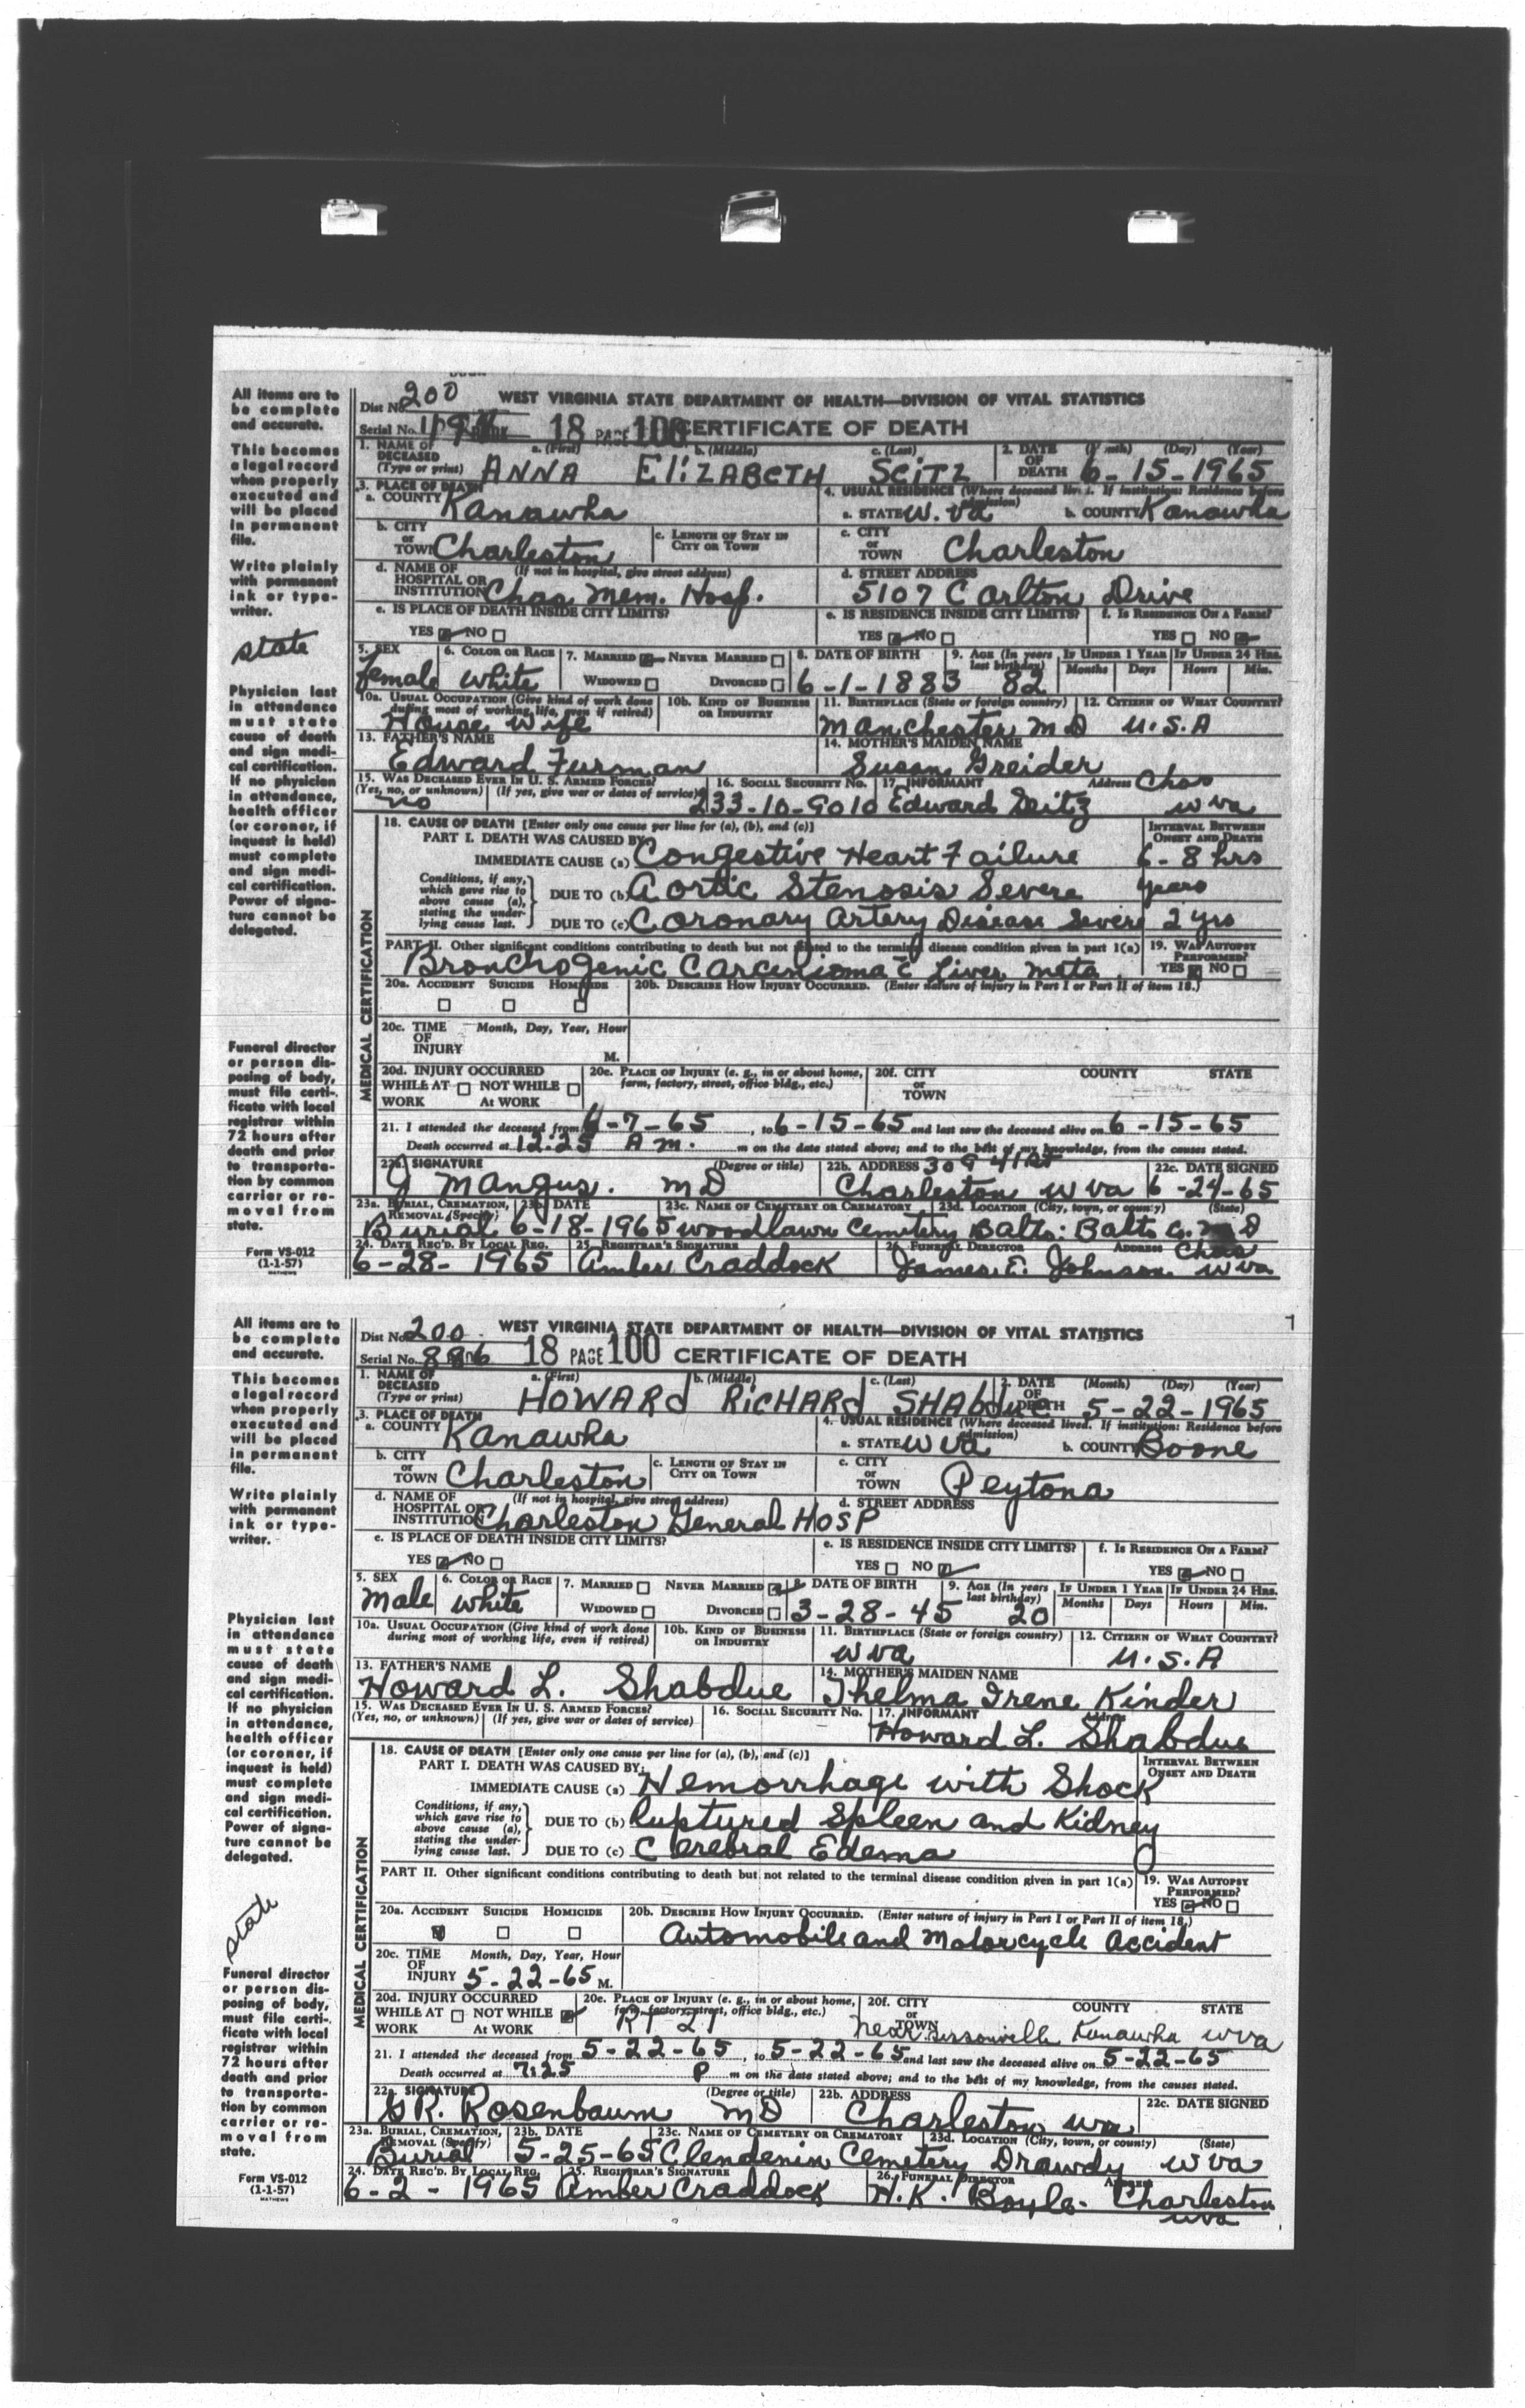 All items are to be complete and accurate.
This becomes a legal record when properly executed and will be placed in permanent file.
Write plainly with permanent ink or type-writer.
state
Physician last in attendance must state cause of death and sign medi-cal certification. If no physician in attendance, health officer (or coroner, if inquest is held) must complete and sign medi-cal certification. Power of signa-ture cannot be delegated.
Funeral director or person dis-posing of body, must file certi-ficate with local registrar within 72 hours after death and prior to transporta-tion by common carrier or re-moval from state.
Form VS-012
(1-1-57)
MATHEWS
Dist No. 200 WEST VIRGINIA STATE DEPARTMENT OF HEALTH—DIVISION OF VITAL STATISTICS
Serial No. 18 PAGE 100 CERTIFICATE OF DEATH
1. NAME OF DECEASED (Type or print) a. (First) b. (Middle) c. (Last) 2. DATE OF DEATH (Day) (Year)
ANNA ElizABETH SEiTZ 6-15-1965
3. PLACE OF DEATH 4. USUAL RESIDENCE (Where deceased lived. If institution: Residence before admission)
a. COUNTY Kanawha a. STATE W. Va b. COUNTY Kanawha
b. CITY or TOWN Charleston c. LENGTH OF STAY IN CITY OR TOWN c. CITY or TOWN Charleston
d. NAME OF HOSPITAL OR INSTITUTION (If not in hospital, give street address) Chas Mem. Hosp. d. STREET ADDRESS 5107 Carlton Drive
e. IS PLACE OF DEATH INSIDE CITY LIMITS? e. IS RESIDENCE INSIDE CITY LIMITS? f. IS RESIDENCE ON A FARM?
YES NO YES NO YES NO
5. SEX 6. COLOR OR RACE 7. MARRIED NEVER MARRIED 8. DATE OF BIRTH 9. AGE (In years last birthday) IF UNDER 1 YEAR IF UNDER 24 HRS.
female white WIDOWED DIVORCED 6-1-1883 82 Months Days Hours Min.
10a. USUAL OCCUPATION (Give kind of work done during most of working life, even if retired) 10b. KIND OF BUSINESS OR INDUSTRY 11. BIRTHPLACE (State or foreign country) 12. CITIZEN OF WHAT COUNTRY?
House wife Manchester MD U.S.A
13. FATHER'S NAME 14. MOTHER'S MAIDEN NAME
Edward Furman Susan Greider
15. WAS DECEASED EVER IN U. S. ARMED FORCES? 16. SOCIAL SECURITY No. 17. INFORMANT Address Chas
(Yes, no, or unknown) (If yes, give war or dates of service)
no 233-10-9010 Edward Seitz w va
18. CAUSE OF DEATH [Enter only one cause per line for (a), (b), and (c)] INTERVAL BETWEEN ONSET AND DEATH
PART I. DEATH WAS CAUSED BY:
IMMEDIATE CAUSE (a) Congestive Heart Failure 6-8 hrs
Conditions, if any, which gave rise to above cause (a), stating the under-lying cause last.
DUE TO (b) Aortic Stenosis Severe years
DUE TO (c) Coronary Artery Disease Severe 2 yrs
PART II. Other significant conditions contributing to death but not related to the terminal disease condition given in part 1(a) 19. WAS AUTOPSY PERFORMED?
Bronchogenic Carcenioma c̄ Liver meta. YES NO
20a. ACCIDENT SUICIDE HOMICIDE 20b. DESCRIBE HOW INJURY OCCURRED. (Enter nature of injury in Part I or Part II of item 18.)
20c. TIME OF INJURY Month, Day, Year, Hour M.
20d. INJURY OCCURRED WHILE AT WORK NOT WHILE AT WORK 20e. PLACE OF INJURY (e. g., in or about home, farm, factory, street, office bldg., etc.) 20f. CITY or TOWN COUNTY STATE
MEDICAL CERTIFICATION
21. I attended the deceased from -7-65, to 6-15-65 and last saw the deceased alive on 6-15-65
Death occurred at 12:25 A m. m on the date stated above; and to the best of my knowledge, from the causes stated.
22a. SIGNATURE (Degree or title) 22b. ADDRESS 309 41 St 22c. DATE SIGNED
J Mangus. MD Charleston w va 6-24-65
23a. BURIAL, CREMATION, REMOVAL (Specify) 23b. DATE 23c. NAME OF CEMETERY OR CREMATORY 23d. LOCATION (City, town, or county) (State)
Burial 6-18-1965 Woodlawn Cemetery Balto: Balto Co. MD
24. DATE REC'D. BY LOCAL REG. 25. REGISTRAR'S SIGNATURE 26. FUNERAL DIRECTOR ADDRESS Chas
6-28-1965 Amber Craddock James E. Johnson w va
All items are to be complete and accurate.
This becomes a legal record when properly executed and will be placed in permanent file.
Write plainly with permanent ink or type-writer.
Physician last in attendance must state cause of death and sign medi-cal certification. If no physician in attendance, health officer (or coroner, if inquest is held) must complete and sign medi-cal certification. Power of signa-ture cannot be delegated.
state
Funeral director or person dis-posing of body, must file certi-ficate with local registrar within 72 hours after death and prior to transporta-tion by common carrier or re-moval from state.
Form VS-012
(1-1-57)
MATHEWS
Dist No. 200 WEST VIRGINIA STATE DEPARTMENT OF HEALTH—DIVISION OF VITAL STATISTICS
Serial No. 18 PAGE 100 CERTIFICATE OF DEATH
1. NAME OF DECEASED (Type or print) a. (First) b. (Middle) c. (Last) 2. DATE OF DEATH (Month) (Day) (Year)
HOWARd RiCHARd SHAbdue 5-22-1965
3. PLACE OF DEATH 4. USUAL RESIDENCE (Where deceased lived. If institution: Residence before admission)
a. COUNTY Kanawha a. STATE w va b. COUNTY Boone
b. CITY or TOWN Charleston c. LENGTH OF STAY IN CITY OR TOWN c. CITY or TOWN Peytona
d. NAME OF HOSPITAL OR INSTITUTION (If not in hospital, give street address) Charleston General HOSP d. STREET ADDRESS
e. IS PLACE OF DEATH INSIDE CITY LIMITS? e. IS RESIDENCE INSIDE CITY LIMITS? f. IS RESIDENCE ON A FARM?
YES NO YES NO YES NO
5. SEX 6. COLOR OR RACE 7. MARRIED NEVER MARRIED 8. DATE OF BIRTH 9. AGE (In years last birthday) IF UNDER 1 YEAR IF UNDER 24 HRS.
male white WIDOWED DIVORCED 3-28-45 20 Months Days Hours Min.
10a. USUAL OCCUPATION (Give kind of work done during most of working life, even if retired) 10b. KIND OF BUSINESS OR INDUSTRY 11. BIRTHPLACE (State or foreign country) 12. CITIZEN OF WHAT COUNTRY?
w va U.S.A
13. FATHER'S NAME 14. MOTHER'S MAIDEN NAME
Howard L. Shabdue Thelma Irene Kinder
15. WAS DECEASED EVER IN U. S. ARMED FORCES? 16. SOCIAL SECURITY No. 17. INFORMANT Address
(Yes, no, or unknown) (If yes, give war or dates of service) Howard L. Shabdue
18. CAUSE OF DEATH [Enter only one cause per line for (a), (b), and (c)] INTERVAL BETWEEN ONSET AND DEATH
PART I. DEATH WAS CAUSED BY:
IMMEDIATE CAUSE (a) Hemorrhage with Shock
Conditions, if any, which gave rise to above cause (a), stating the under-lying cause last.
DUE TO (b) Ruptured Spleen and Kidney
DUE TO (c) Cerebral Edema
PART II. Other significant conditions contributing to death but not related to the terminal disease condition given in part 1(a) 19. WAS AUTOPSY PERFORMED?
YES NO
20a. ACCIDENT SUICIDE HOMICIDE 20b. DESCRIBE HOW INJURY OCCURRED. (Enter nature of injury in Part I or Part II of item 18.)
Automobile and Motorcycle Accident
20c. TIME OF INJURY Month, Day, Year, Hour 5-22-65 M.
20d. INJURY OCCURRED WHILE AT WORK NOT WHILE AT WORK 20e. PLACE OF INJURY (e. g., in or about home, farm, factory, street, office bldg., etc.) RT 21 20f. CITY or TOWN COUNTY STATE
near Kanawha w va
MEDICAL CERTIFICATION
21. I attended the deceased from 5-22-65, to 5-22-65 and last saw the deceased alive on 5-22-65
Death occurred at 7:25 P m on the date stated above; and to the best of my knowledge, from the causes stated.
22a. SIGNATURE (Degree or title) 22b. ADDRESS 22c. DATE SIGNED
R. Rosenbaum MD Charleston wva
23a. BURIAL, CREMATION, REMOVAL (Specify) 23b. DATE 23c. NAME OF CEMETERY OR CREMATORY 23d. LOCATION (City, town, or county) (State)
Burial 5-25-65 Clendenin Cemetery Drawdy w va
24. DATE REC'D. BY LOCAL REG. 25. REGISTRAR'S SIGNATURE 26. FUNERAL DIRECTOR ADDRESS
6-2-1965 Amber Craddock H.K. Boyle. Charleston
wva